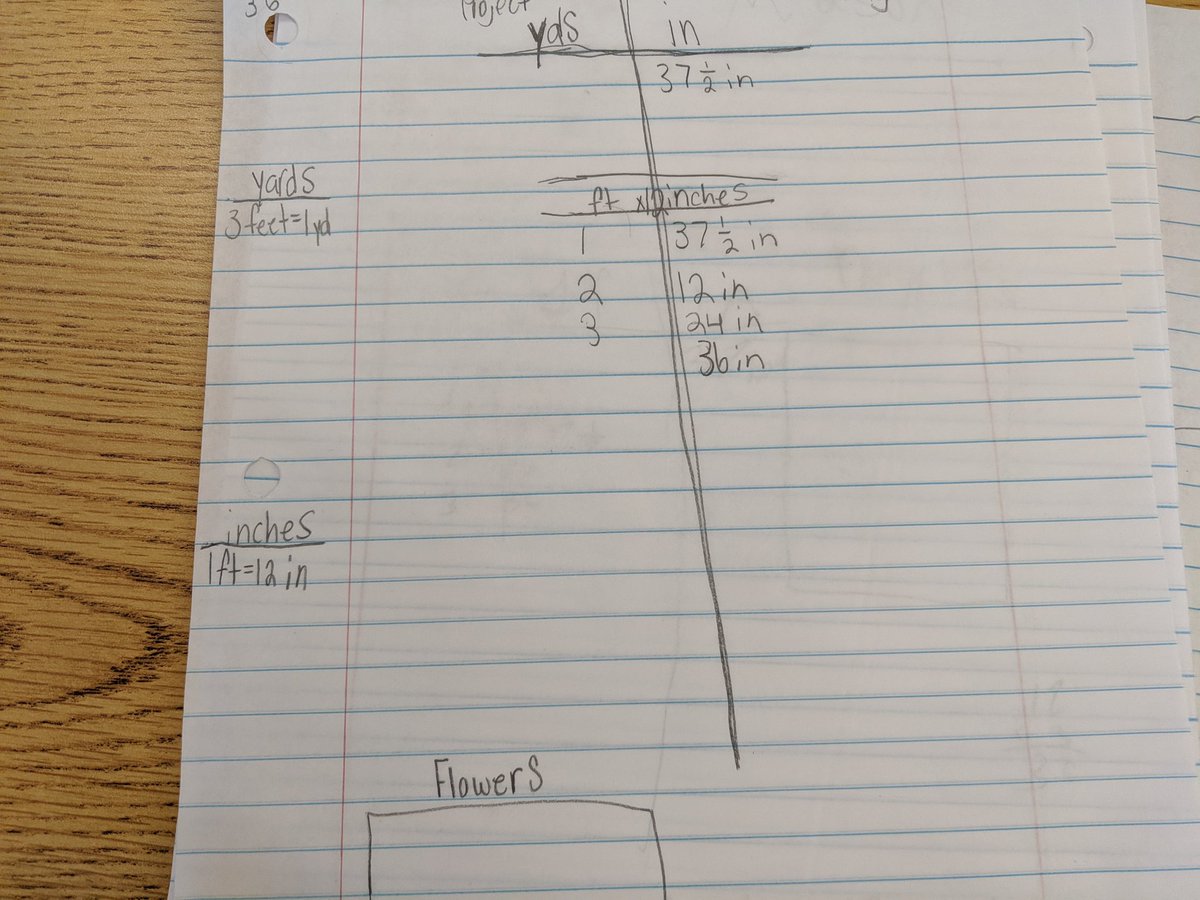 36
Project
yds in
37 1/2 in
yards
3 feet=1yd
ft x12 inches
1 37 1/2 in
2 12 in
3 24 in
36 in
inches
1ft=12 in
Flowers